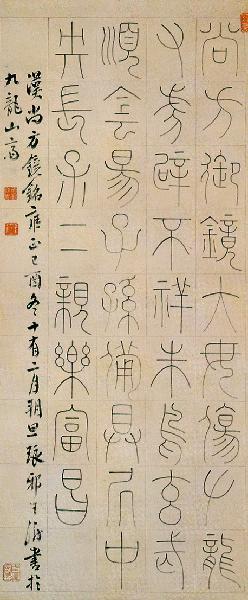 尚方御鏡大毋傷左龍
右虎辟不祥朱鳥玄武
順陰陽子孫備具居中
央長保二親樂富昌
漢尚方鏡銘雍正己酉冬十有二月朔旦琅邪王澍書於
九龍山齋